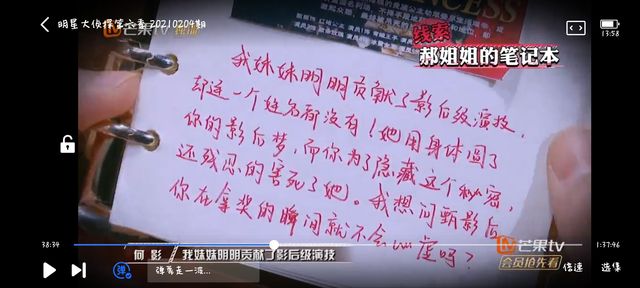 明星大侦探第六季20210204期
13:58
芒果tv
线索
郝姐姐的笔记本
我妹妹明明贡献了影后级演技，
却连一个姓名都没有！她用身体圆了
你的影后梦，而你为了隐藏这个秘密，
还残忍的害死了她。我想问甄影后
你在拿奖的瞬间就不会心虚吗？
38:34
1:37:46
何影
我妹妹明明贡献了影后级演技
芒果tv
会员抢先看
弹
弹幕走一波...
倍速
选集